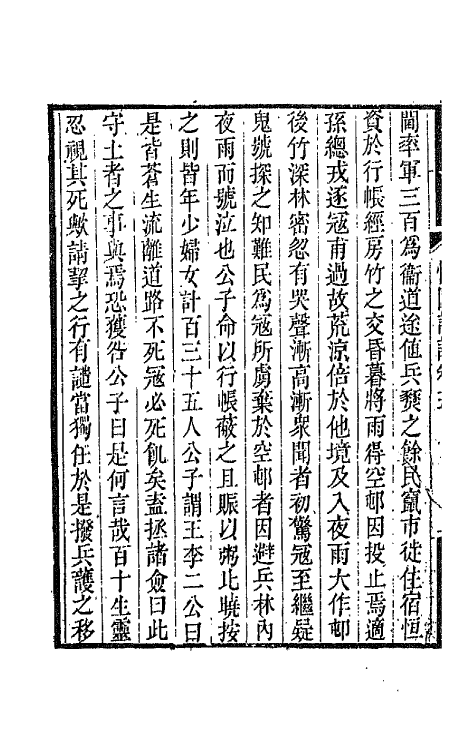 閫率軍三百爲衞道途値兵燹之餘民竄市徙住宿恒
資於行帳經房竹之交昏暮將雨得空邨因投止焉適
孫總戎逐冦甫過故荒凉倍於他境及入夜雨大作邨
後竹深林密忽有哭聲漸高漸衆聞者初驚冦至繼疑
鬼號探之知難民爲冦所虜棄於空邨者因避兵林內
夜雨而號泣也公子命以行帳蔽之且賑以粥比曉按
之則皆年少婦女計百三十五人公子謂王李二公曰
是皆蒼生流離道路不死冦必死飢矣盍拯諸僉曰此
守土者之事與焉恐獲咎公子曰是何言哉百十生靈
忍視其死歟請挈之行有譴當獨任於是撥兵護之移